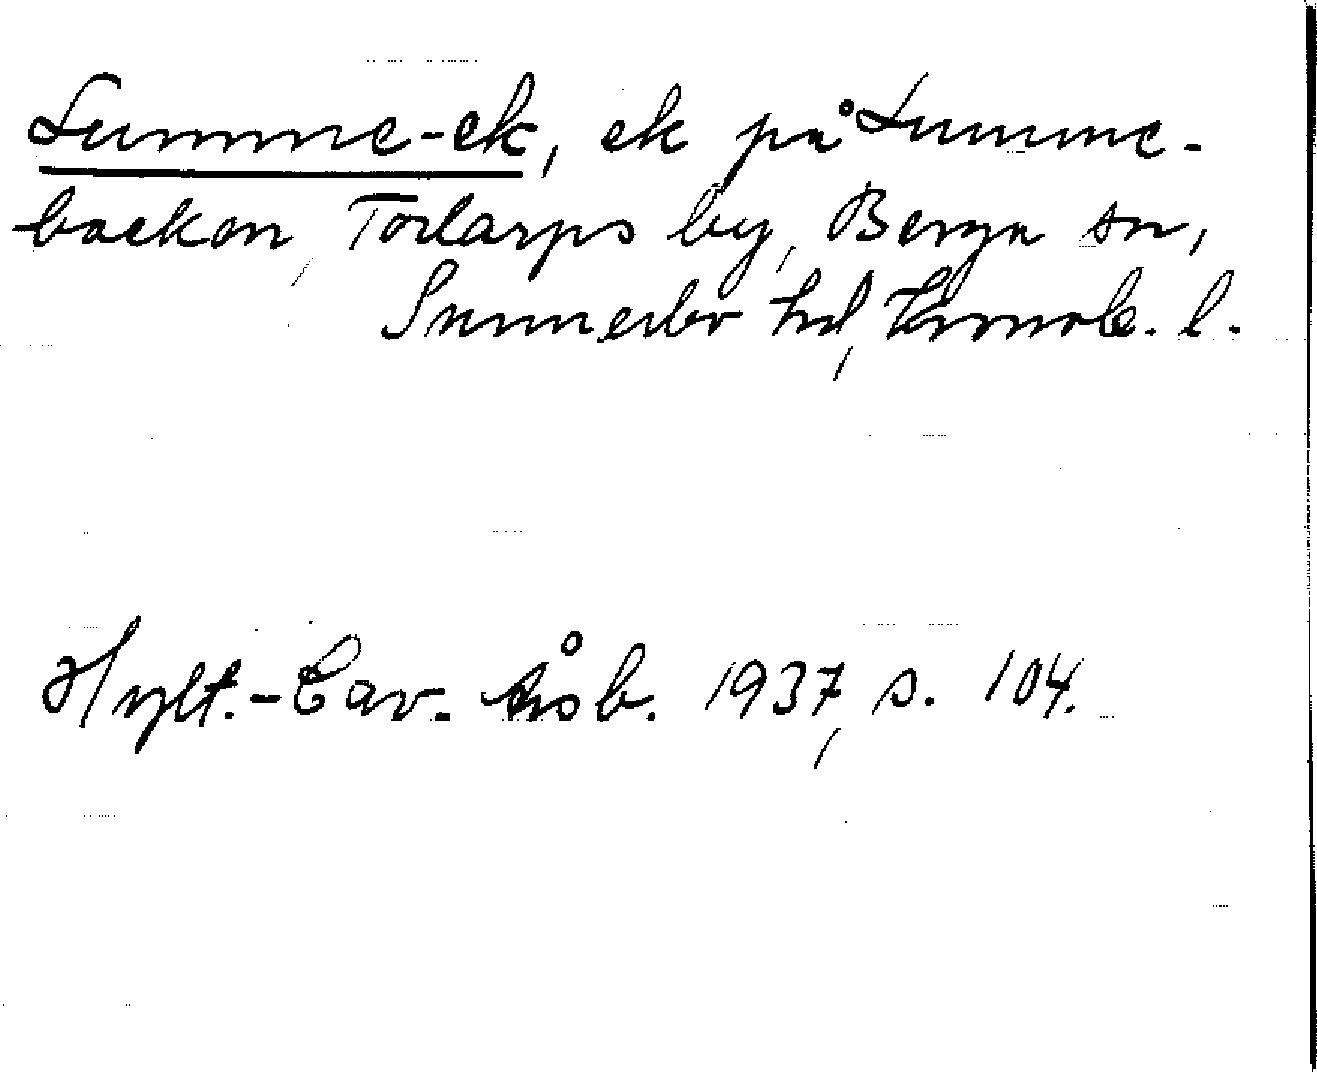 Lumme-ek, ek på Lumme-
backen, Torlarps by, Berga sn,
Sunnerbo hd, Kronob. l.
Hylt.-Cav. årsb. 1937, s. 104.